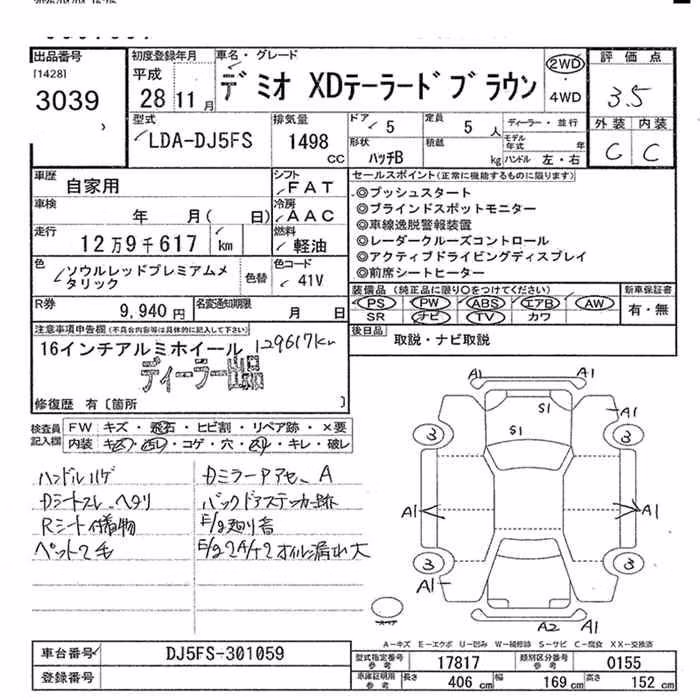 出品番号
[1428]
3039
初度登録年月
平成
28 11月
車名・グレード
デミオ XDテーラードブラウン
2WD
・
4WD
評価点
3.5
外装 内装
C C
型式
LDA-DJ5FS
排気量
1498
CC
ドア
5
定員
5 人
ディーラー・並行
モデル年式 年
形状
ハッチB
積載
kg
ハンドル 左・右
車歴
自家用
シフト
FAT
車検
年 月( 日)
冷房
AAC
走行
12万9千617 km
燃料
軽油
色
ソウルレッドプレミアムメタリック
色替
色コード
41V
R券
9,940円
名変通知期限
月 日
セールスポイント(正常に機能するものに限ります)
◎プッシュスタート
◎ブラインドスポットモニター
◎車線逸脱警報装置
◎レーダークルーズコントロール
◎アクティブドライビングディスプレイ
◎前席シートヒーター
装備品(純正品に限り○をつけてください)
PS PW ABS エアB AW
SR ナビ TV カワ
新車保証書
有・無
後日品
取説・ナビ取説
注意事項申告欄(不具合内容等は具体的に記入して下さい)
16インチアルミホイール 129617km
ディーラー出品
修復歴 有〔箇所 〕
検査員記入欄
FW キズ・飛石・ヒビ割・リペア跡・×要
内装 キズ・汚レ・コゲ・穴・スリ・キレ・破レ
ハンドルハゲ
Dシートスレ、ヘタリ
Rシート付着物
ペット2毛
DミラーPアセ、A
バックドアステッカー跡
E/g廻り音
オイル漏れ大
A1 A1
A1
S1
S1
3 3
A1 A1
3 3
A1
A2 A1
スペア
A-キズ E-エクボ U-凹み W-補修跡 S-サビ C-腐食 XX-交換済
車台番号
DJ5FS-301059
登録番号
型式指定番号
参考
17817
類別区分番号
参考
0155
車庫証明用
参考
長さ 406 cm
幅 169 cm
高さ 152 cm